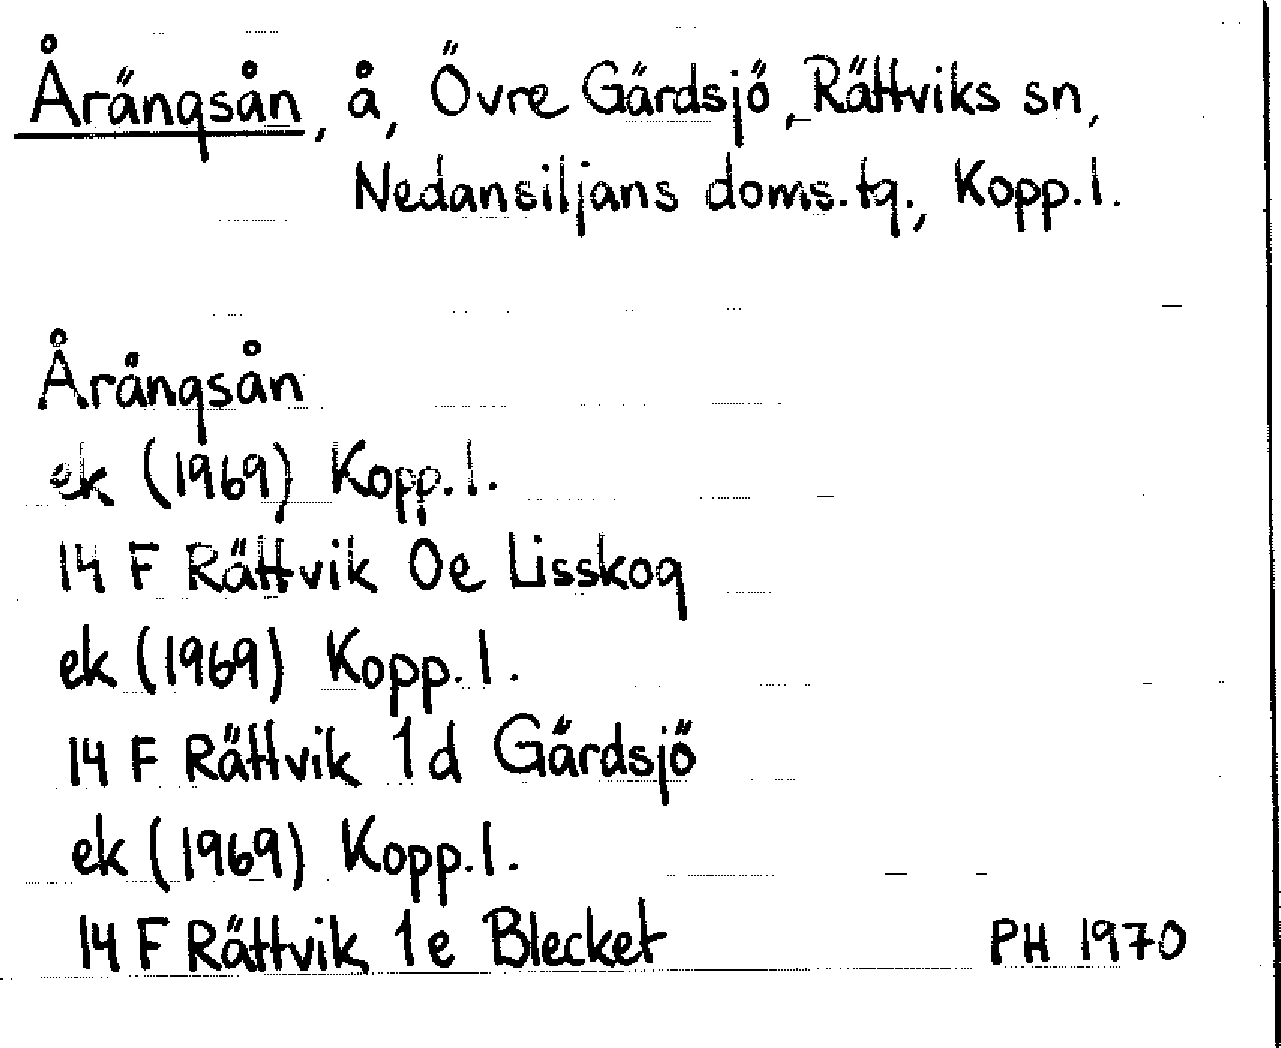 Årängsån, å, Övre Gärdsjö, Rättviks sn,
Nedansiljans doms.tg., Kopp.l.
Årängsån
ek (1969) Kopp.l.
14 F Rättvik 0e Lisskog
ek (1969) Kopp.l.
14 F Rättvik 1d Gärdsjö
ek (1969) Kopp.l.
14 F Rättvik 1e Blecket
PH 1970